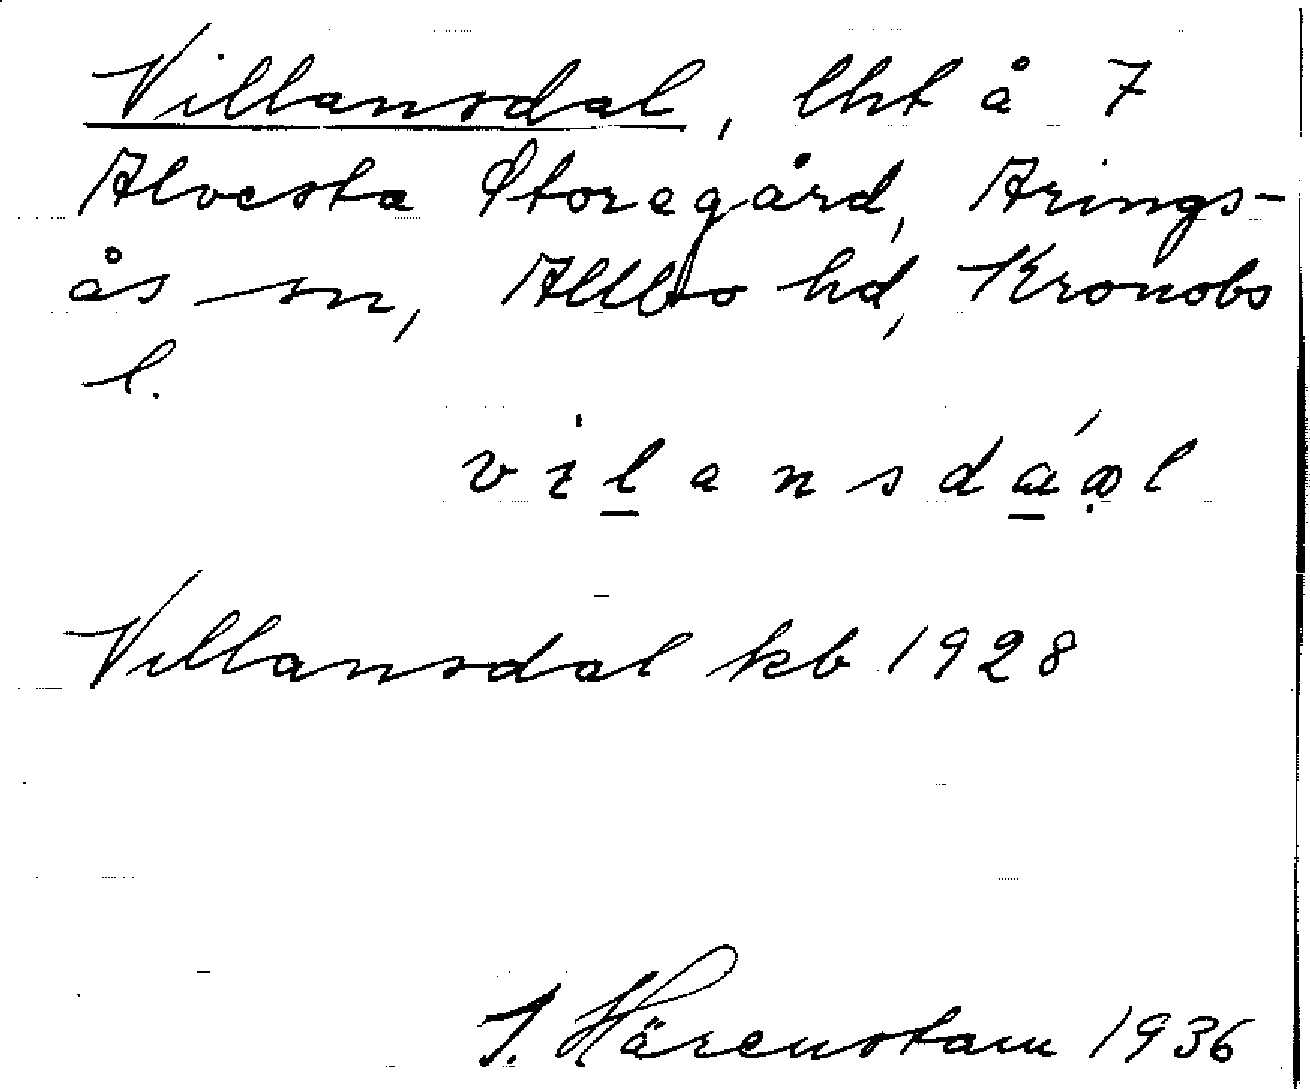 Villansdal, lht å 7
Alvesta Storegård, Arings-
ås sn, Allbo hd, Kronobs
l.
vilansdáal
Villansdal kb 1928
J. Härenstam 1936